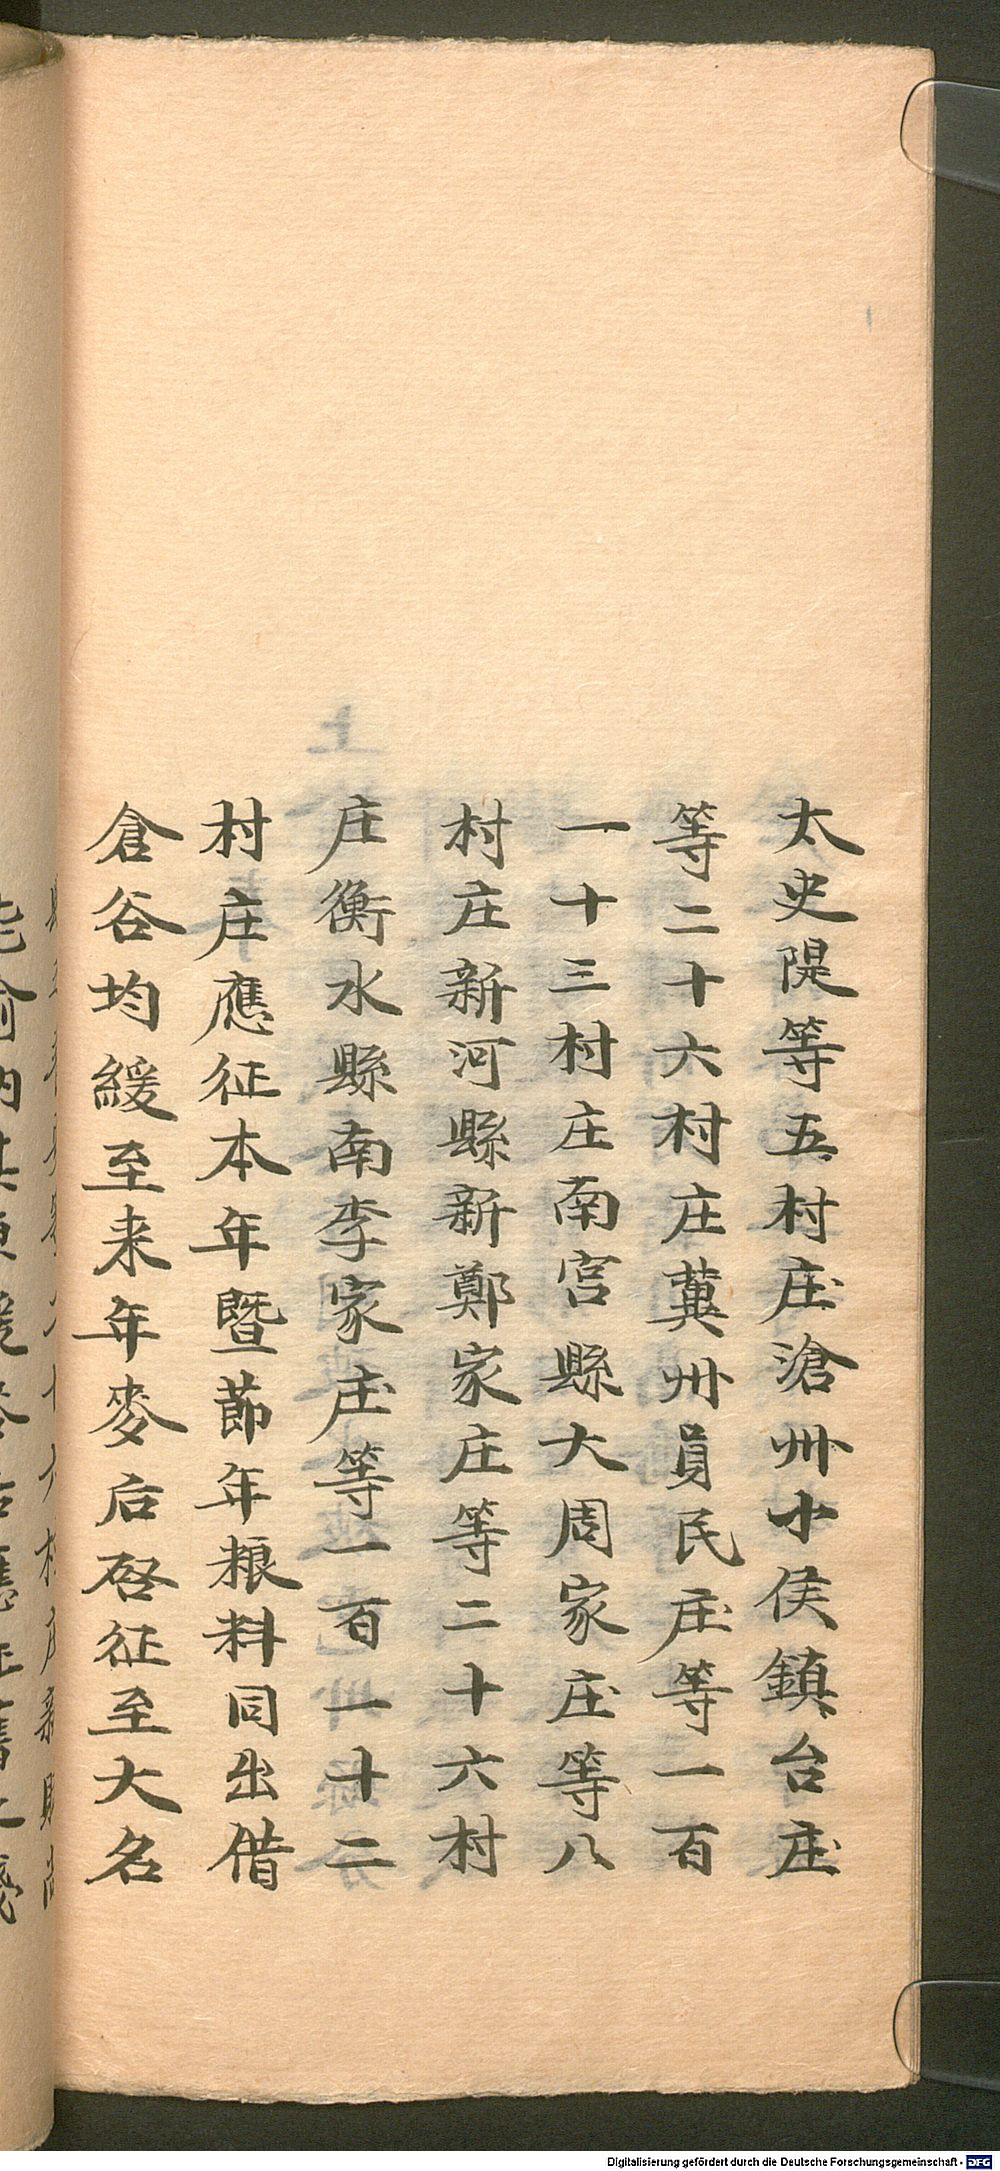 太史隄等五村庄滄州小侯鎮台庄
等二十六村庄冀州員民庄等一百
一十三村庄南宮縣大周家庄等八
村庄新河縣新鄭家庄等二十六村
庄衡水縣南李家庄等一百一十二
村庄應征本年暨節年粮料同出借
倉谷均緩至来年麥后啓征至大名
Digitalisierung gefördert durch die Deutsche Forschungsgemeinschaft - DFG